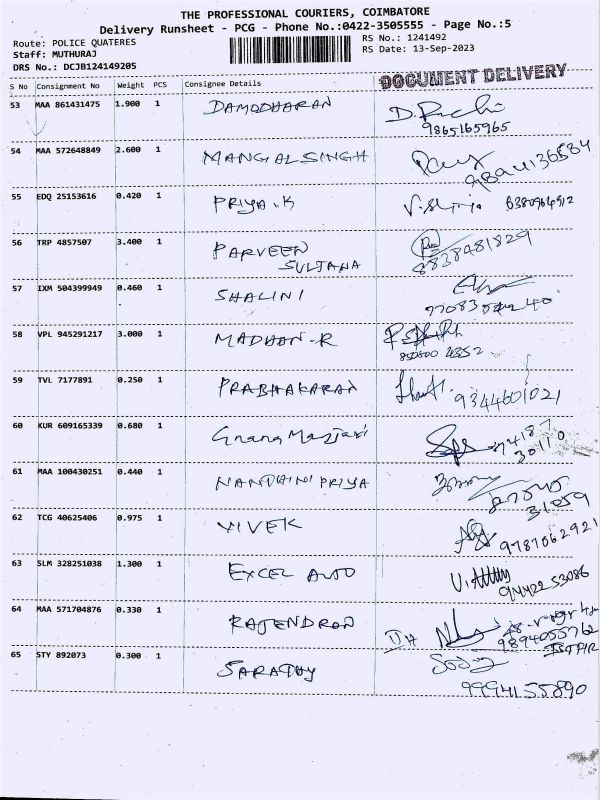 THE PROFESSIONAL COURIERS, COIMBATORE
Delivery Runsheet - PCG - Phone No.:0422-3505555 - Page No.:5
Route: POLICE QUATERES
RS No.: 1241492
Staff: MUTHURAJ
RS Date: 13-Sep-2023
DRS No.: DCJB124149205
DOCUMENT DELIVERY
S No Consignment No Weight PCS Consignee Details
53 MAA 861431475 1.900 1 DAMODHARAN
9865165965
54 MAA 572648849 2.600 1 MANGALSINGH
9894136584
55 EDQ 25153616 0.420 1 PRIYA.K 6380964912
56 TRP 4857507 3.400 1 PARVEEN
SULTANA
8838481829
57 IXM 504399949 0.460 1 SHALINI
58 VPL 945291217 3.000 1 MADHAN-R
59 TVL 7177891 0.250 1 PRABHAKARAN 9344601021
60 KUR 609165339 0.680 1 Gnana
30110
61 MAA 100430251 0.440 1 NANDHINI PRIYA
31059
62 TCG 40625406 0.975 1 VIVEK 9787062921
63 SLM 328251038 1.300 1 EXCEL AUTO
9442253086
64 MAA 571704876 0.330 1 RAJENDRAN
9894055762
65 STY 892073 0.300 1 SARATHY
9994155890